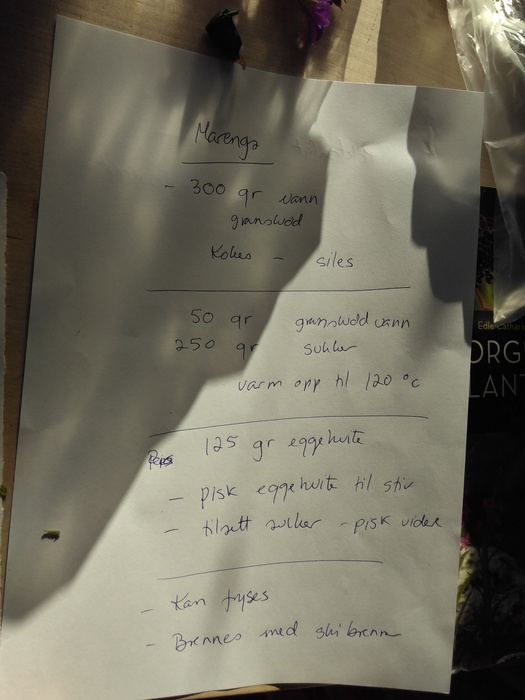 Marengs
- 300 gr vann
granskudd
Kokes - siles
50 gr granskudd vann
250 gr sukker
varm opp til 120 °C
125 gr eggehvite
- pisk eggehvite til stiv
- tilsett sukker - pisk videre
- Kan fryses
- Brennes med
Edle Cathar
ORG
LANT